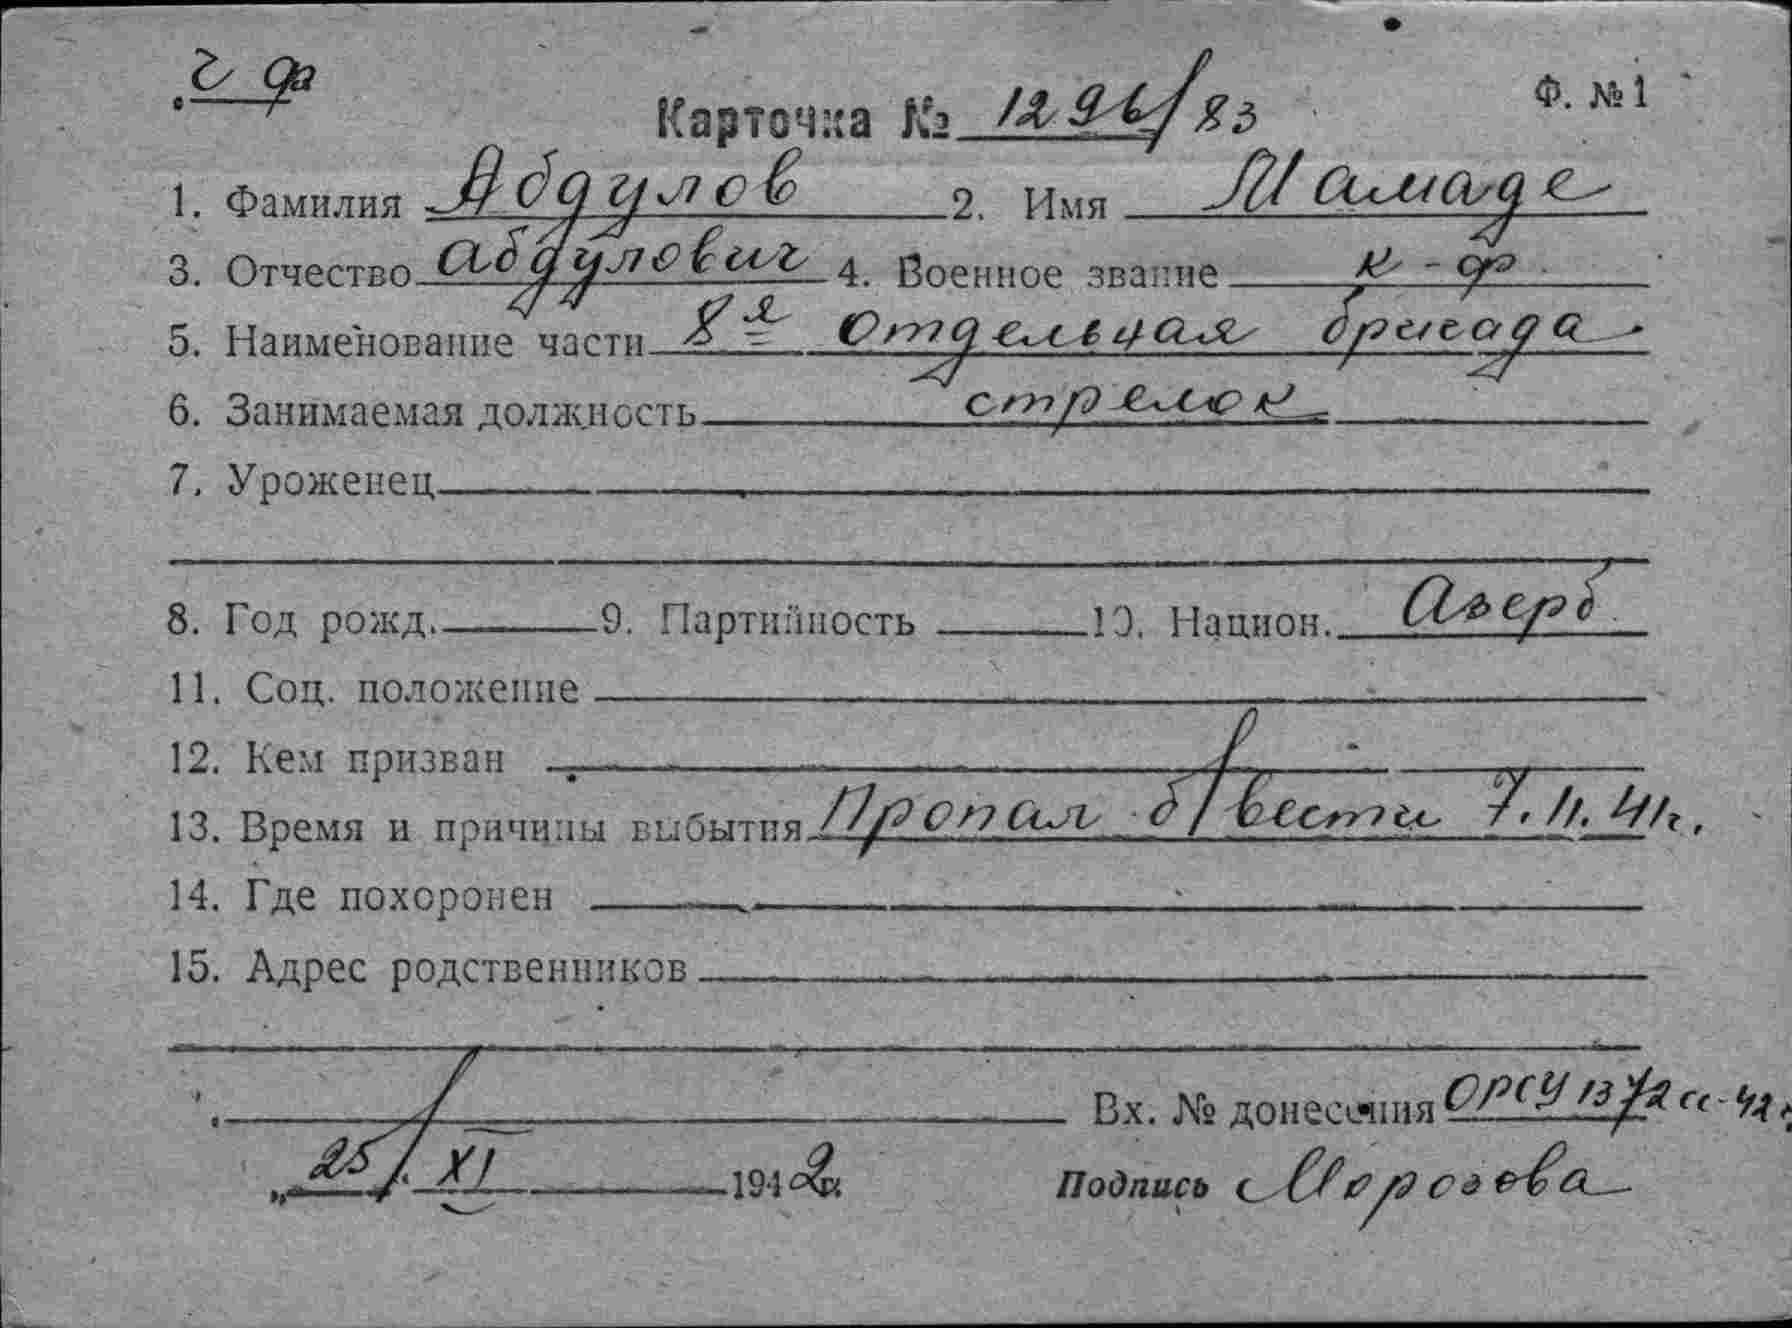 Ф. №1
Карточка № 1296/83
1. Фамилия Абдулов 2. Имя Мамаде
3. Отчество Абдулович 4. Военное звание к-ф
5. Наименование части 8я Отдельная бригада.
6. Занимаемая должность стрелок
7. Уроженец
8. Год рожд. 9. Партийность 10. Национ. Азерб.
11. Соц. положение
12. Кем призван
13. Время и причины выбытия Пропал б/вести 7.11.41г.
14. Где похоронен
15. Адрес родственников
Вх. № донесения
„25/ XI 1942г. Подпись Морозова